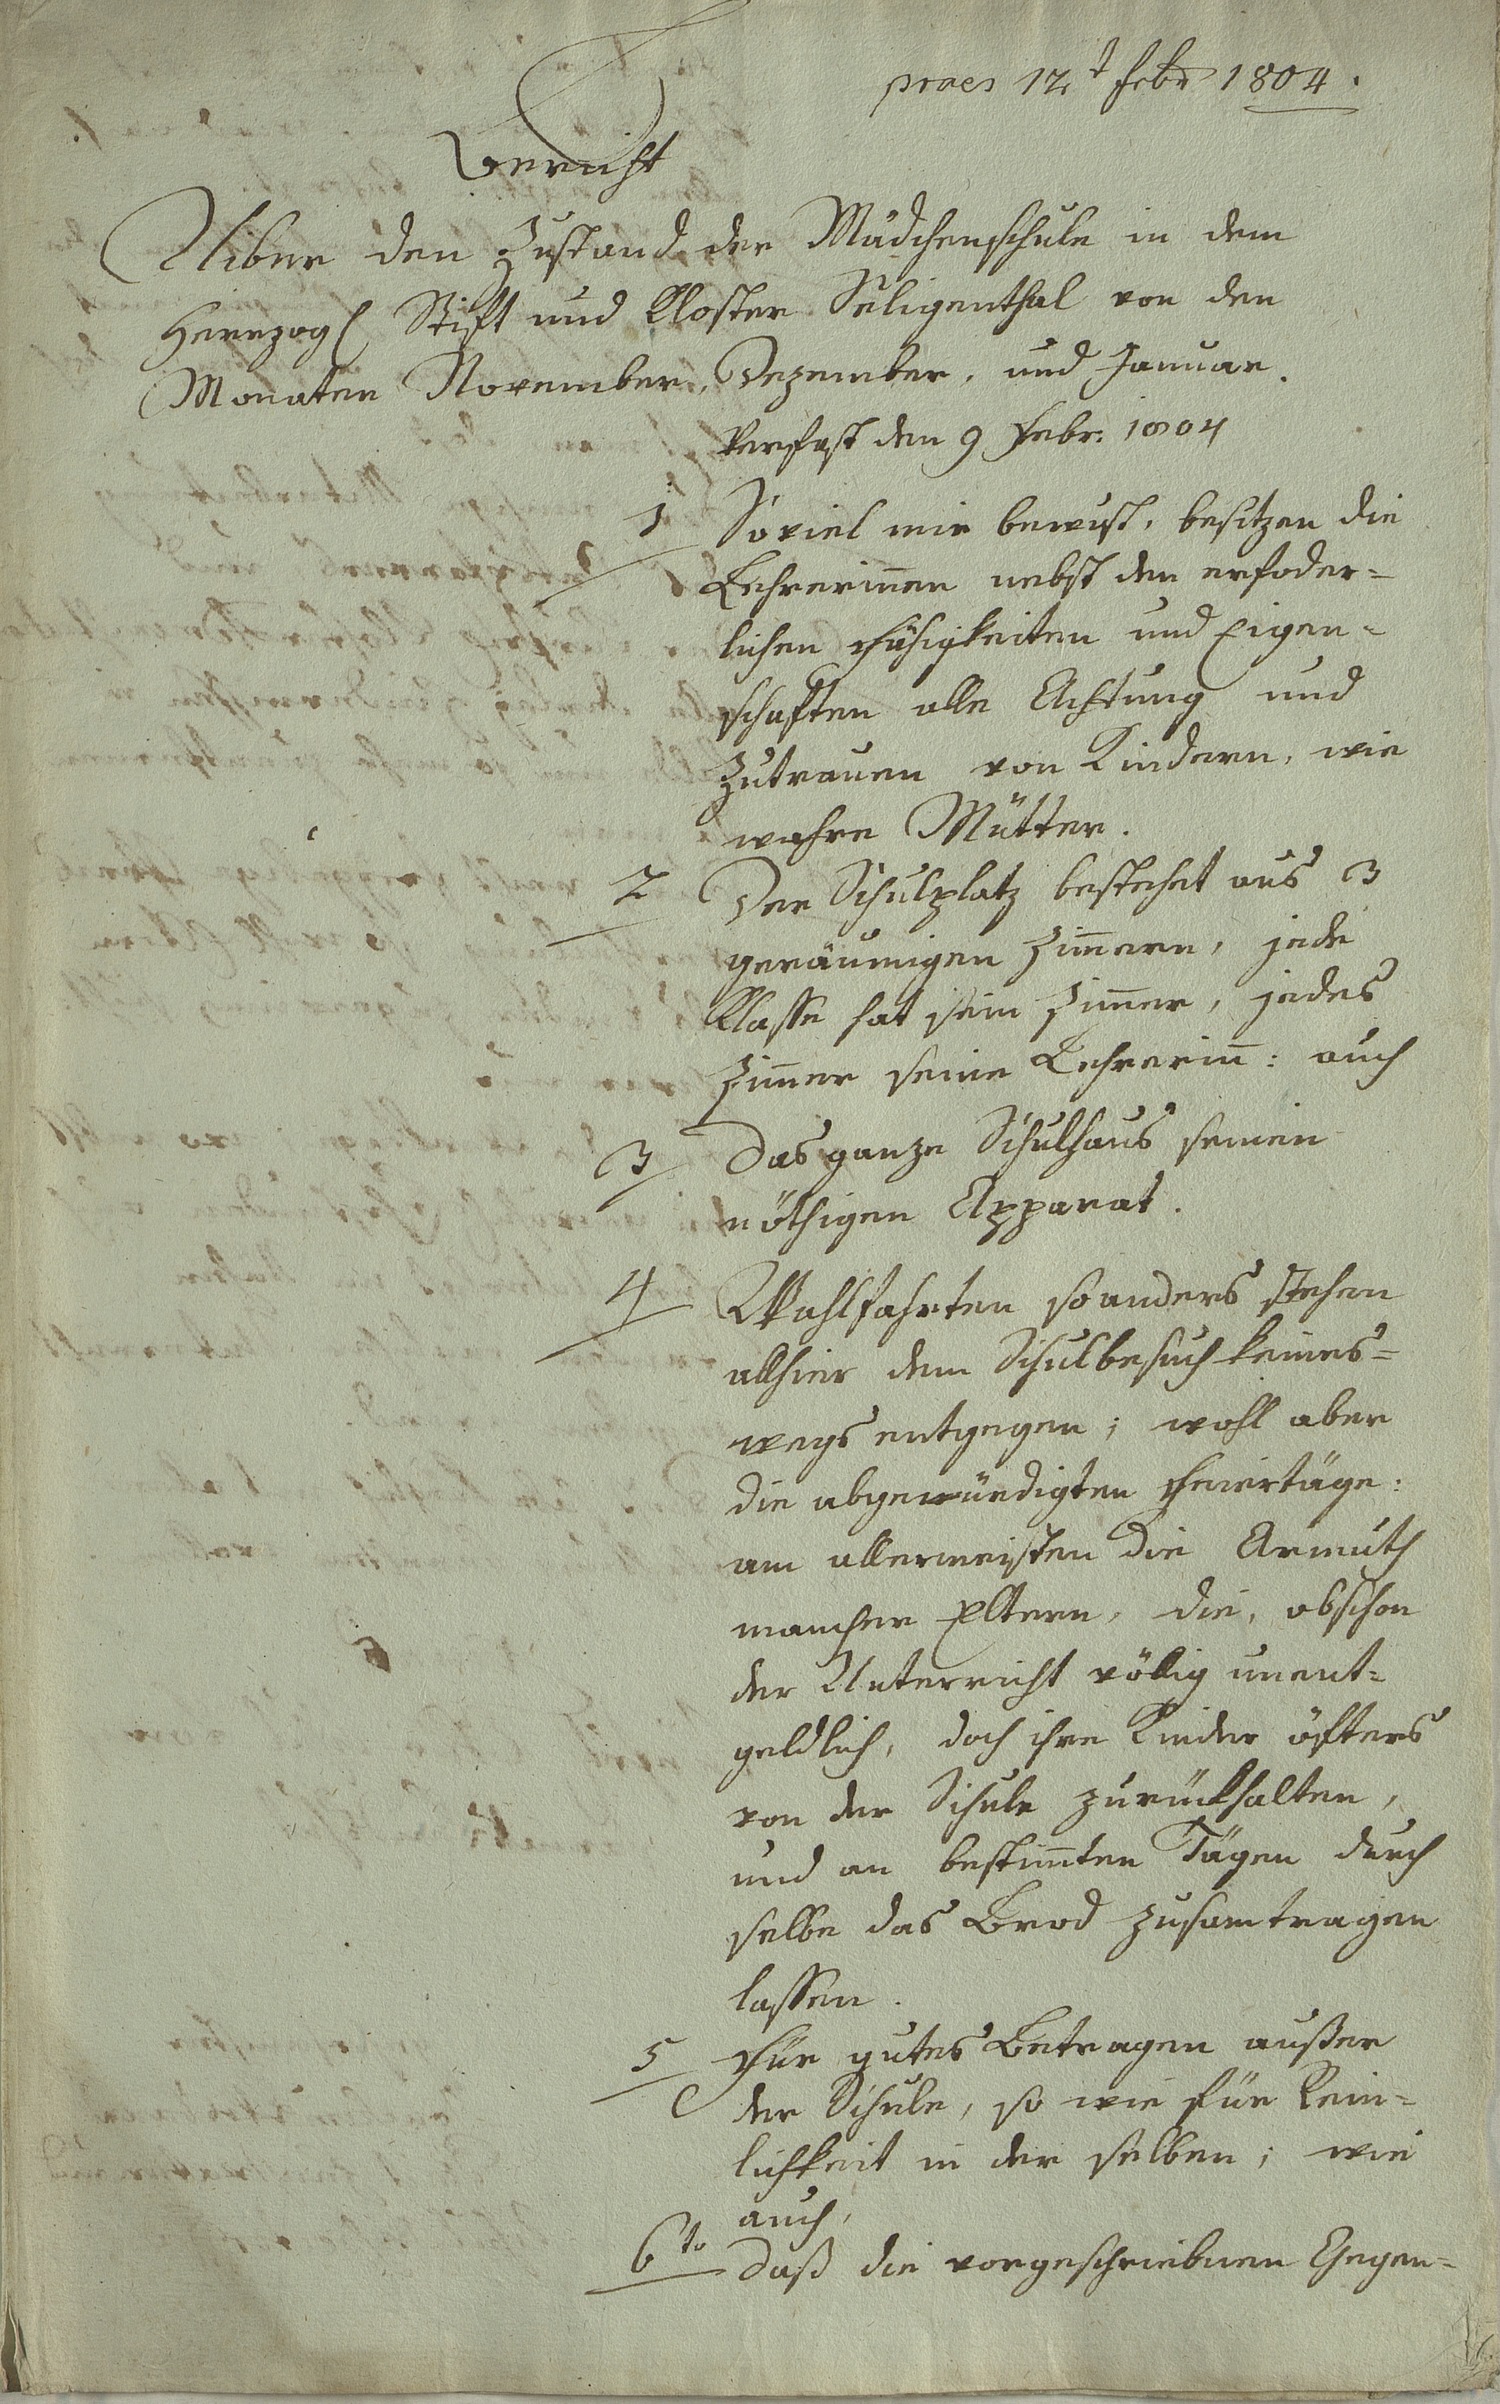 praes 12t Febr 1804.
Bericht
Uiber den Zustand der Mädchenschule in dem
Herrzogl Stift und Kloster Seligenthal von den
Monaten November, Dezember, und Januar.
Verfast den 9 Febr: 1804
1 Soviel mir bewust, besitzen die
Lehrerinnen nebst den erfoder-
lichen Fähigkeiten und Eigen-
schaften alle Achtung und
Zutrauen von Kindern, wie
wahre Mütter.
2 Der Schulplatz bestehet aus 3
geräumigen Zimmern, jede
Klasse hat sein Zimmer, jedes
Zimmer seine Lehrerinn: auch
3 Das ganze Schulhaus seinen
nöthigen Apparat.
4 Wahlfahrten so anders stehen
allhier dem Schulbesuch keines-
wegs entgegen; wohl aber
die abgewürdigten Feiertäge:
am allermeisten die Armuth
mancher Eltern, die, obschon
der Unterricht völlig unent-
geldlich, doch ihre Kinder öfters
von der Schule zurückhalten,
und an bestimmten Tägen durch
selbe das Brod zusamtragen
lassen.
5 Für gutes Betragen außer
der Schule, so wie für Rein-
lichkeit in der selben; wie
auch,
6to daß die vorgeschriebnen Gegen-